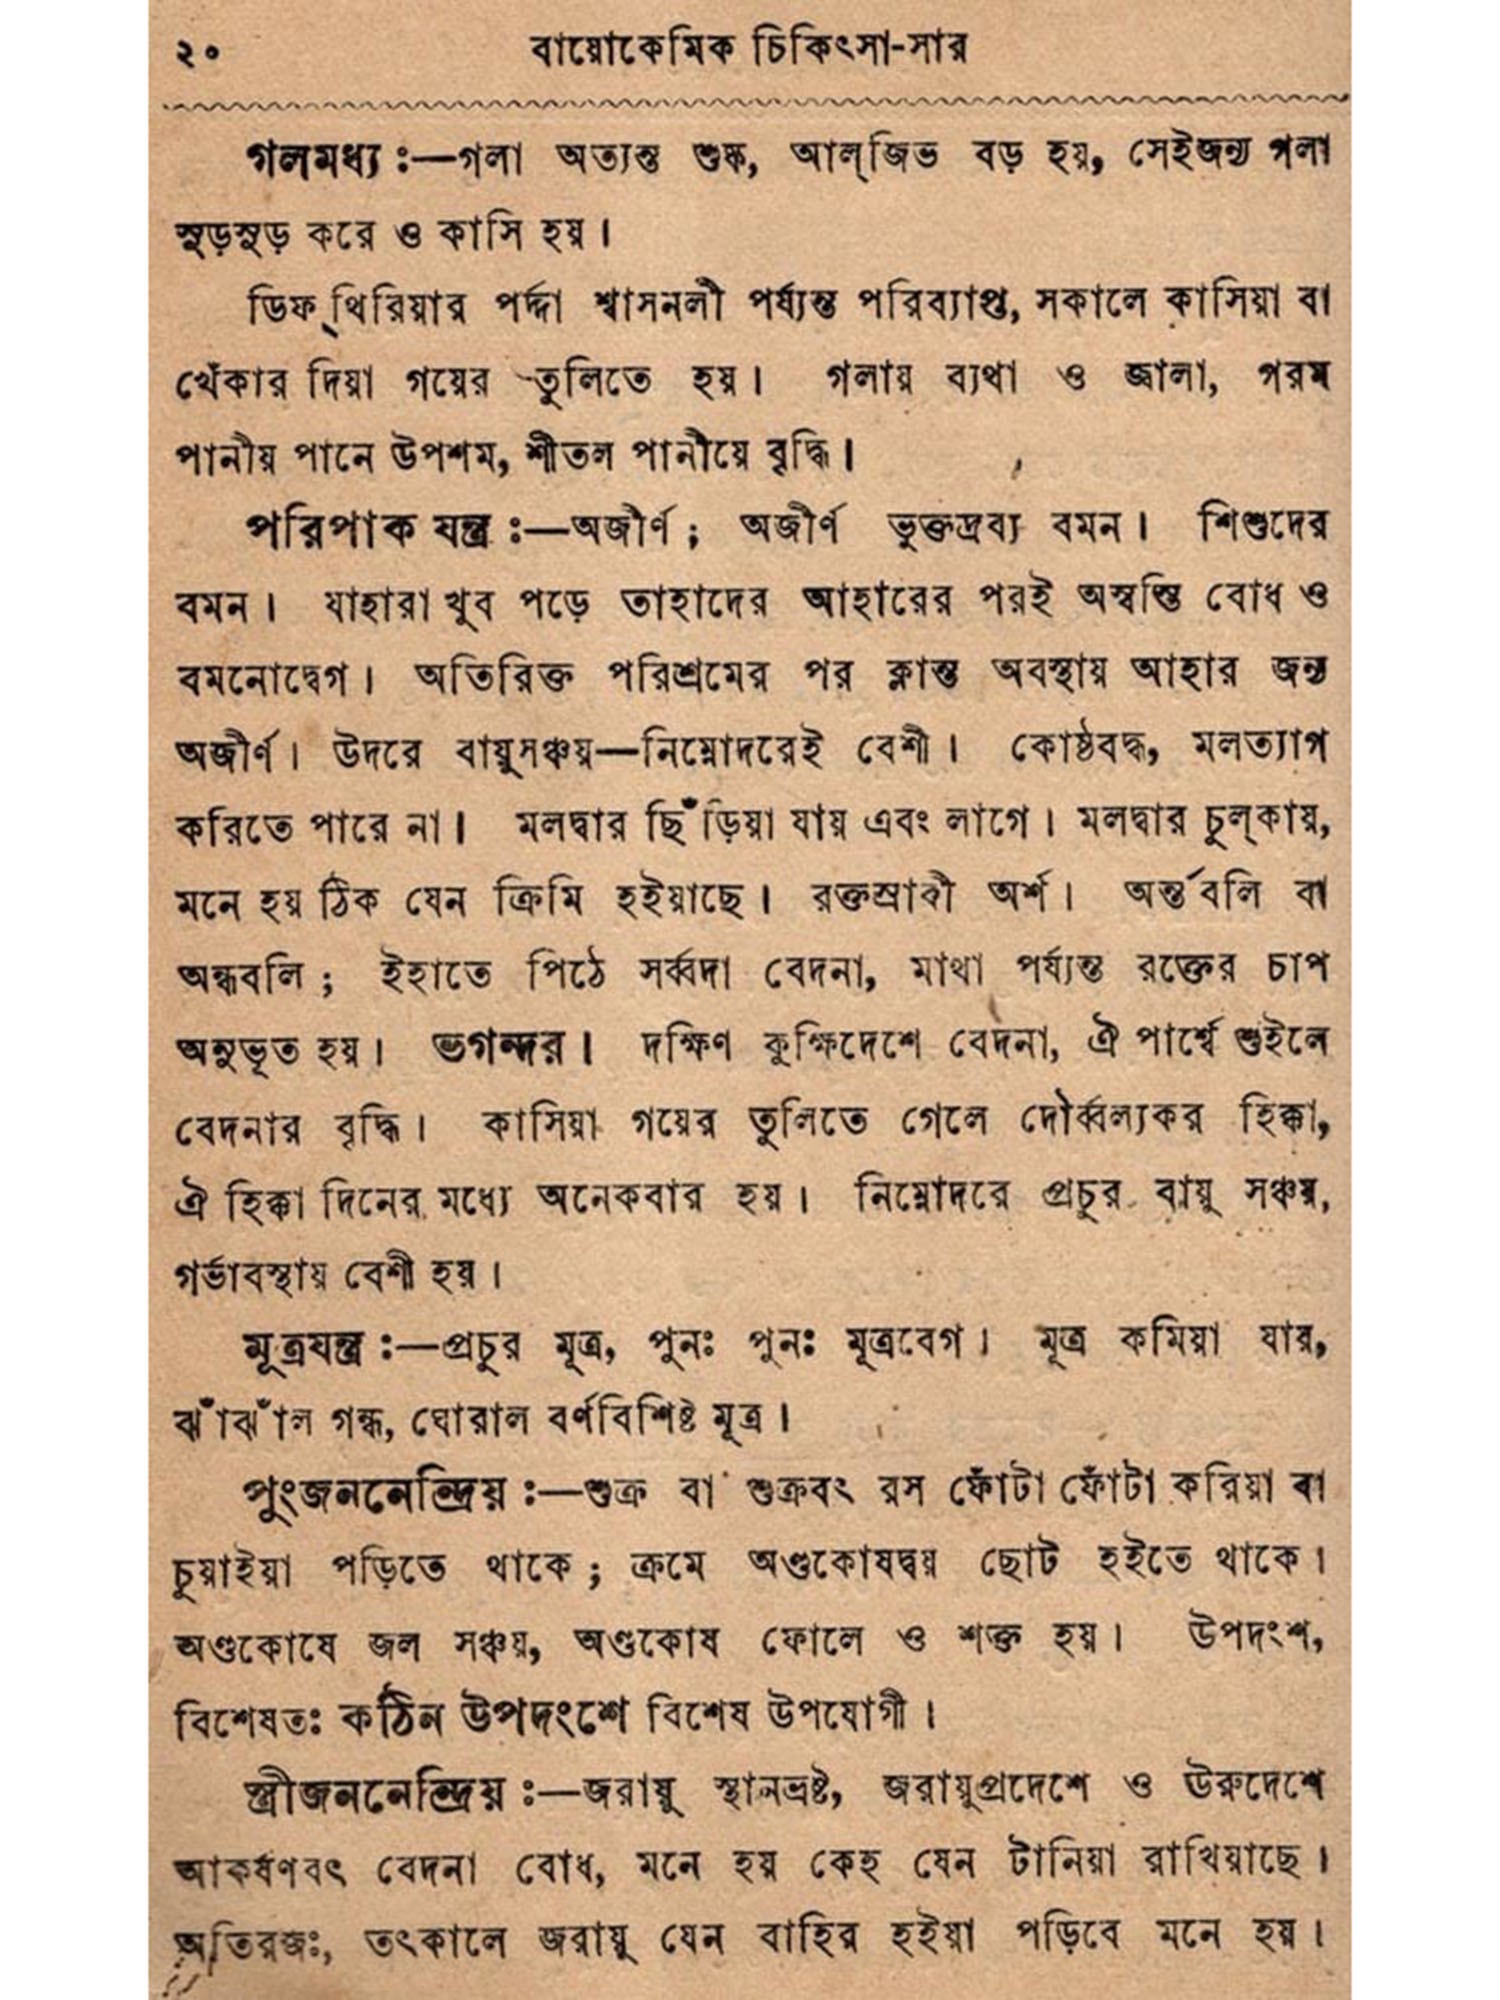 ২০ বায়োকেমিক চিকিৎসা-সার
গলমধ্য :—গলা অত্যন্ত শুষ্ক, আল্‌জিভ বড় হয়, সেইজন্য গলা
সুড়সুড় করে ও কাসি হয়।
ডিফ্‌থিরিয়ার পর্দ্দা শ্বাসনলী পর্য্যন্ত পরিব্যাপ্ত, সকালে কাসিয়া বা
খেঁকার দিয়া গয়ের তুলিতে হয়। গলায় ব্যথা ও জ্বালা, গরম
পানীয় পানে উপশম, শীতল পানীয়ে বৃদ্ধি।
পরিপাক যন্ত্র :—অজীর্ণ ; অজীর্ণ ভুক্তদ্রব্য বমন। শিশুদের
বমন। যাহারা খুব পড়ে তাহাদের আহারের পরই অস্বস্তি বোধ ও
বমনোদ্বেগ। অতিরিক্ত পরিশ্রমের পর ক্লান্ত অবস্থায় আহার জন্য
অজীর্ণ। উদরে বায়ুসঞ্চয়—নিম্নোদরেই বেশী। কোষ্ঠবদ্ধ, মলত্যাগ
করিতে পারে না। মলদ্বার ছিঁড়িয়া যায় এবং লাগে। মলদ্বার চুল্‌কায়,
মনে হয় ঠিক যেন ক্রিমি হইয়াছে। রক্তস্রাবী অর্শ। অর্ন্তবলি বা
অন্ধবলি ; ইহাতে পিঠে সর্ব্বদা বেদনা, মাথা পর্য্যন্ত রক্তের চাপ
অনুভূত হয়। ভগন্দর। দক্ষিণ কুক্ষিদেশে বেদনা, ঐ পার্শ্বে শুইলে
বেদনার বৃদ্ধি। কাসিয়া গয়ের তুলিতে গেলে দৌর্ব্বল্যকর হিক্কা,
ঐ হিক্কা দিনের মধ্যে অনেকবার হয়। নিম্নোদরে প্রচুর বায়ু সঞ্চয়,
গর্ভাবস্থায় বেশী হয়।
মূত্রযন্ত্র :—প্রচুর মূত্র, পুনঃ পুনঃ মূত্রবেগ। মূত্র কমিয়া যায়,
ঝাঁঝাঁল গন্ধ, ঘোরাল বর্ণবিশিষ্ট মূত্র।
পুংজননেন্দ্রিয় :—শুক্র বা শুক্রবৎ রস ফোঁটা ফোঁটা করিয়া বা
চুয়াইয়া পড়িতে থাকে ; ক্রমে অণ্ডকোষদ্বয় ছোট হইতে থাকে।
অণ্ডকোষে জল সঞ্চয়, অণ্ডকোষ ফোলে ও শক্ত হয়। উপদংশ,
বিশেষতঃ কঠিন উপদংশে বিশেষ উপযোগী।
স্ত্রীজননেন্দ্রিয় :—জরায়ু স্থানভ্রষ্ট, জরায়ুপ্রদেশে ও ঊরুদেশে
আকর্ষণবৎ বেদনা বোধ, মনে হয় কেহ যেন টানিয়া রাখিয়াছে।
অতিরজঃ, তৎকালে জরায়ু যেন বাহির হইয়া পড়িবে মনে হয়।